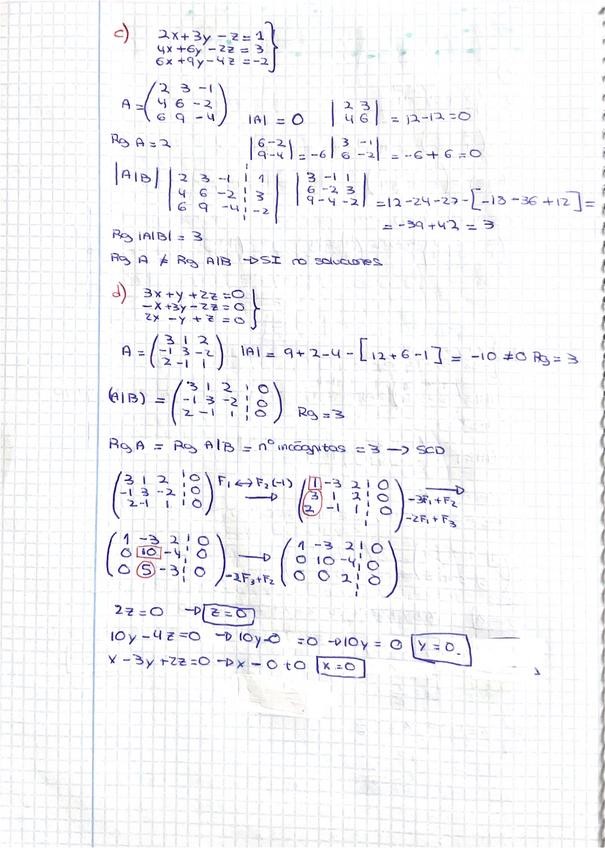 c) 2x+3y-z=1
4x+6y-2z=3
6x+9y-4z=-2
A=(2 3 -1
4 6 -2
6 9 -4) |A|=0 |2 3
4 6| = 12-12=0
Rg A=2 |6 -2
9 -4| = -6 |3 -1
6 -2| = -6+6=0
|A|B| |2 3 -1 ¦ 1
4 6 -2 ¦ 3
6 9 -4 ¦ -2| |3 -1 1
6 -2 3
9 -4 -2| =12-24-27-[-18-36+12]=
= -39+42 = 3
Rg |A|B| = 3
Rg A ≠ Rg A|B → SI no soluciones
d) 3x+y+2z=0
-x+3y-2z=0
2x-y+z=0
A=(3 1 2
-1 3 -2
2 -1 1) |A|= 9+2-4-[12+6-1] = -10 ≠0 Rg=3
(A|B) = (3 1 2 ¦ 0
-1 3 -2 ¦ 0
2 -1 1 ¦ 0) Rg=3
Rg A = Rg A|B = nº incógnitas = 3 → SCD
(3 1 2 ¦ 0
-1 3 -2 ¦ 0
2 -1 1 ¦ 0) F1↔F2(-1) → (1 -3 2 ¦ 0
3 1 2 ¦ 0
2 -1 1 ¦ 0) → -3F1+F2
-2F1+F3
(1 -3 2 ¦ 0
0 10 -4 ¦ 0
0 5 -3 ¦ 0) -2F3+F2 → (1 -3 2 ¦ 0
0 10 -4 ¦ 0
0 0 2 ¦ 0)
2z=0 → z=0
10y-4z=0 → 10y-0 =0 → 10y=0 y=0.
x-3y+2z=0 → x-0+0 x=0